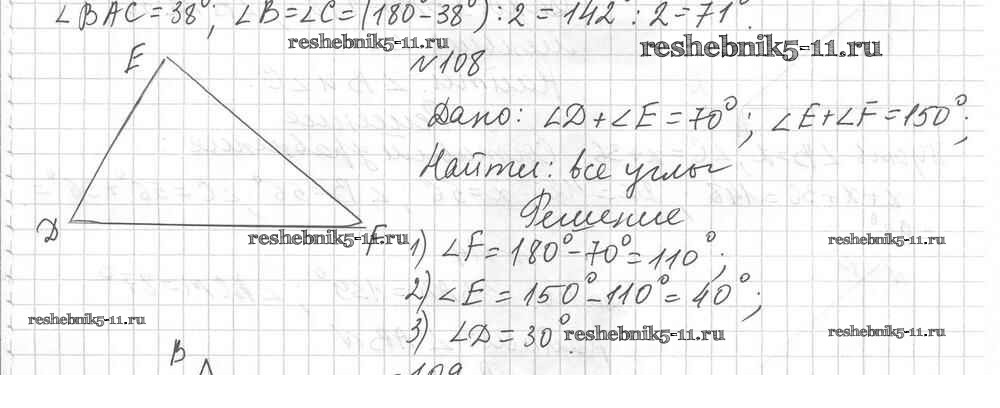 ∠BAC = 38°; ∠B = ∠C = (180° - 38°) : 2 = 142° : 2 = 71°.
reshebnik5-11.ru
reshebnik5-11.ru
E
№108
Дано: ∠D + ∠E = 70°; ∠E + ∠F = 150°;
Найти: все углы
Решение
D
reshebnik5-11.ru
F
1) ∠F = 180° - 70° = 110°;
reshebnik5-11.ru
2) ∠E = 150° - 110° = 40°;
reshebnik5-11.ru
3) ∠D = 30°.
reshebnik5-11.ru
reshebnik5-11.ru
B